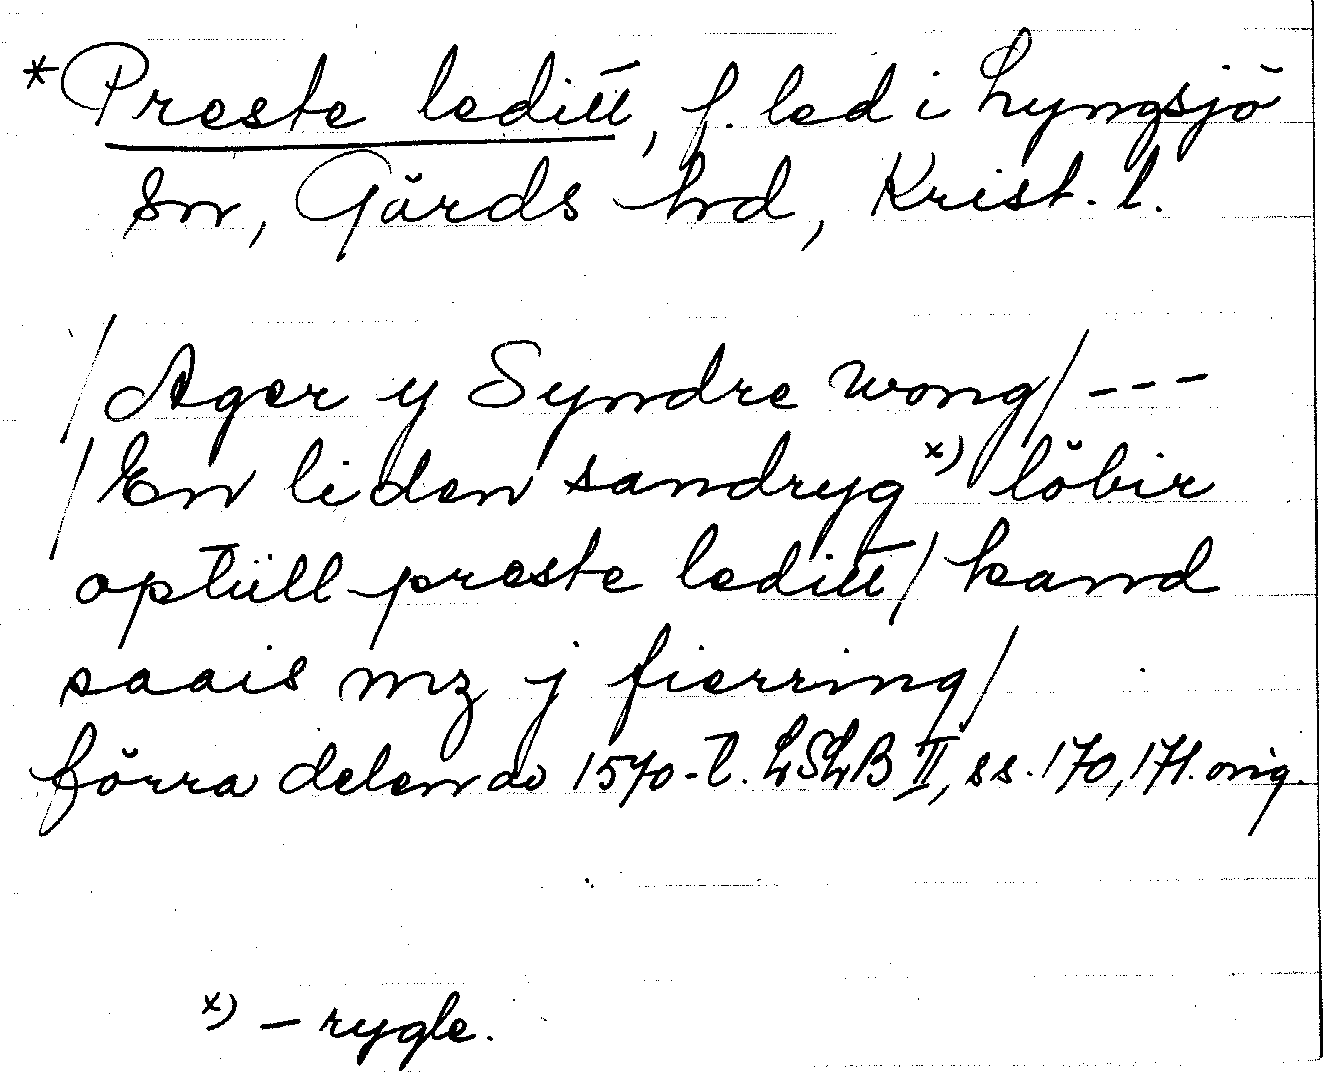 *Preste leditt, f. led i Lyngsjö
sn, Gärds hd, Krist. l.
/Ager y Syndre wong/ ---
/En liden sandryg x) löbir
optill preste leditt/ kand
saais mz j fierring/
förra delen av 1570-t. LSLB II, ss. 170, 171. orig.
x) – rygle.